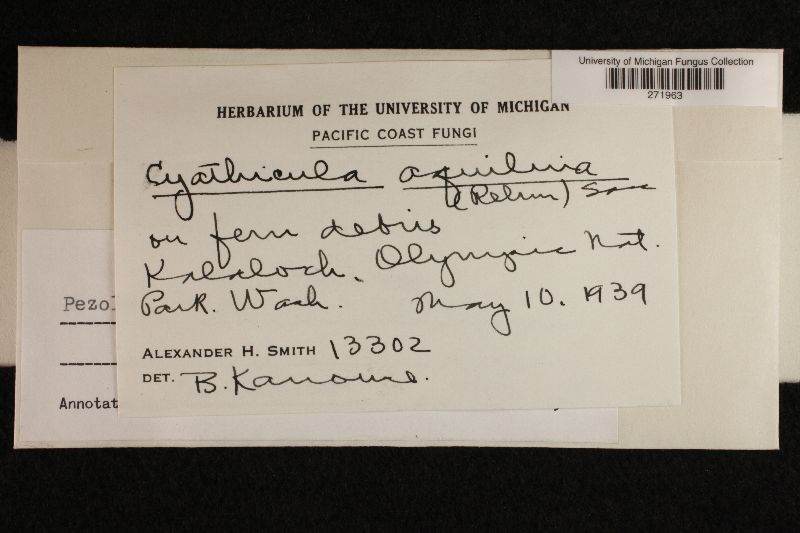 University of Michigan Fungus Collection
271963
HERBARIUM OF THE UNIVERSITY OF MICHIGAN
PACIFIC COAST FUNGI
Cyathicula aquilina
(Rehm) Sacc
on fern debris
Kalaloch, Olympic Nat.
Park. Wash. May 10. 1939
ALEXANDER H. SMITH 13302
DET. B. Kanouse.
Pezol
Annotat